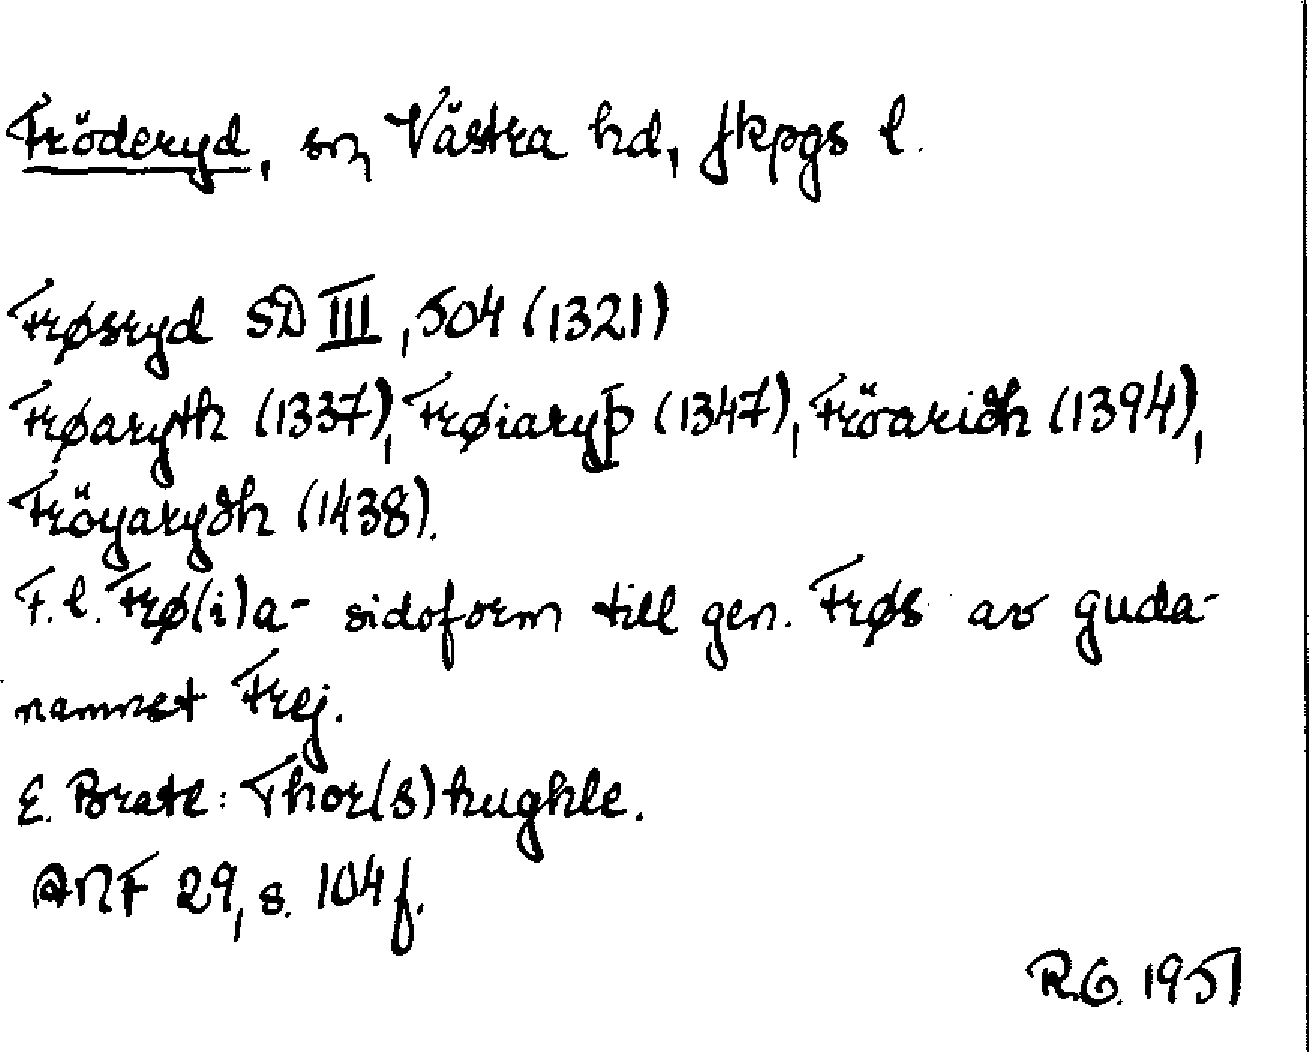 Fröderyd, sn, Västra hd, Jkpgs l.
Frøsryd SD III, 504 (1321)
Frøaryth (1337), Frøiaryþ (1347), Fröaridh (1394),
Fröyarydh (1438).
F. l. Frø(i)a- sidoform till gen. Frøs av guda-
namnet Frej.
E. Brate: Thor(s)hughle.
ANF 29, s. 104 f.
R.G. 1951